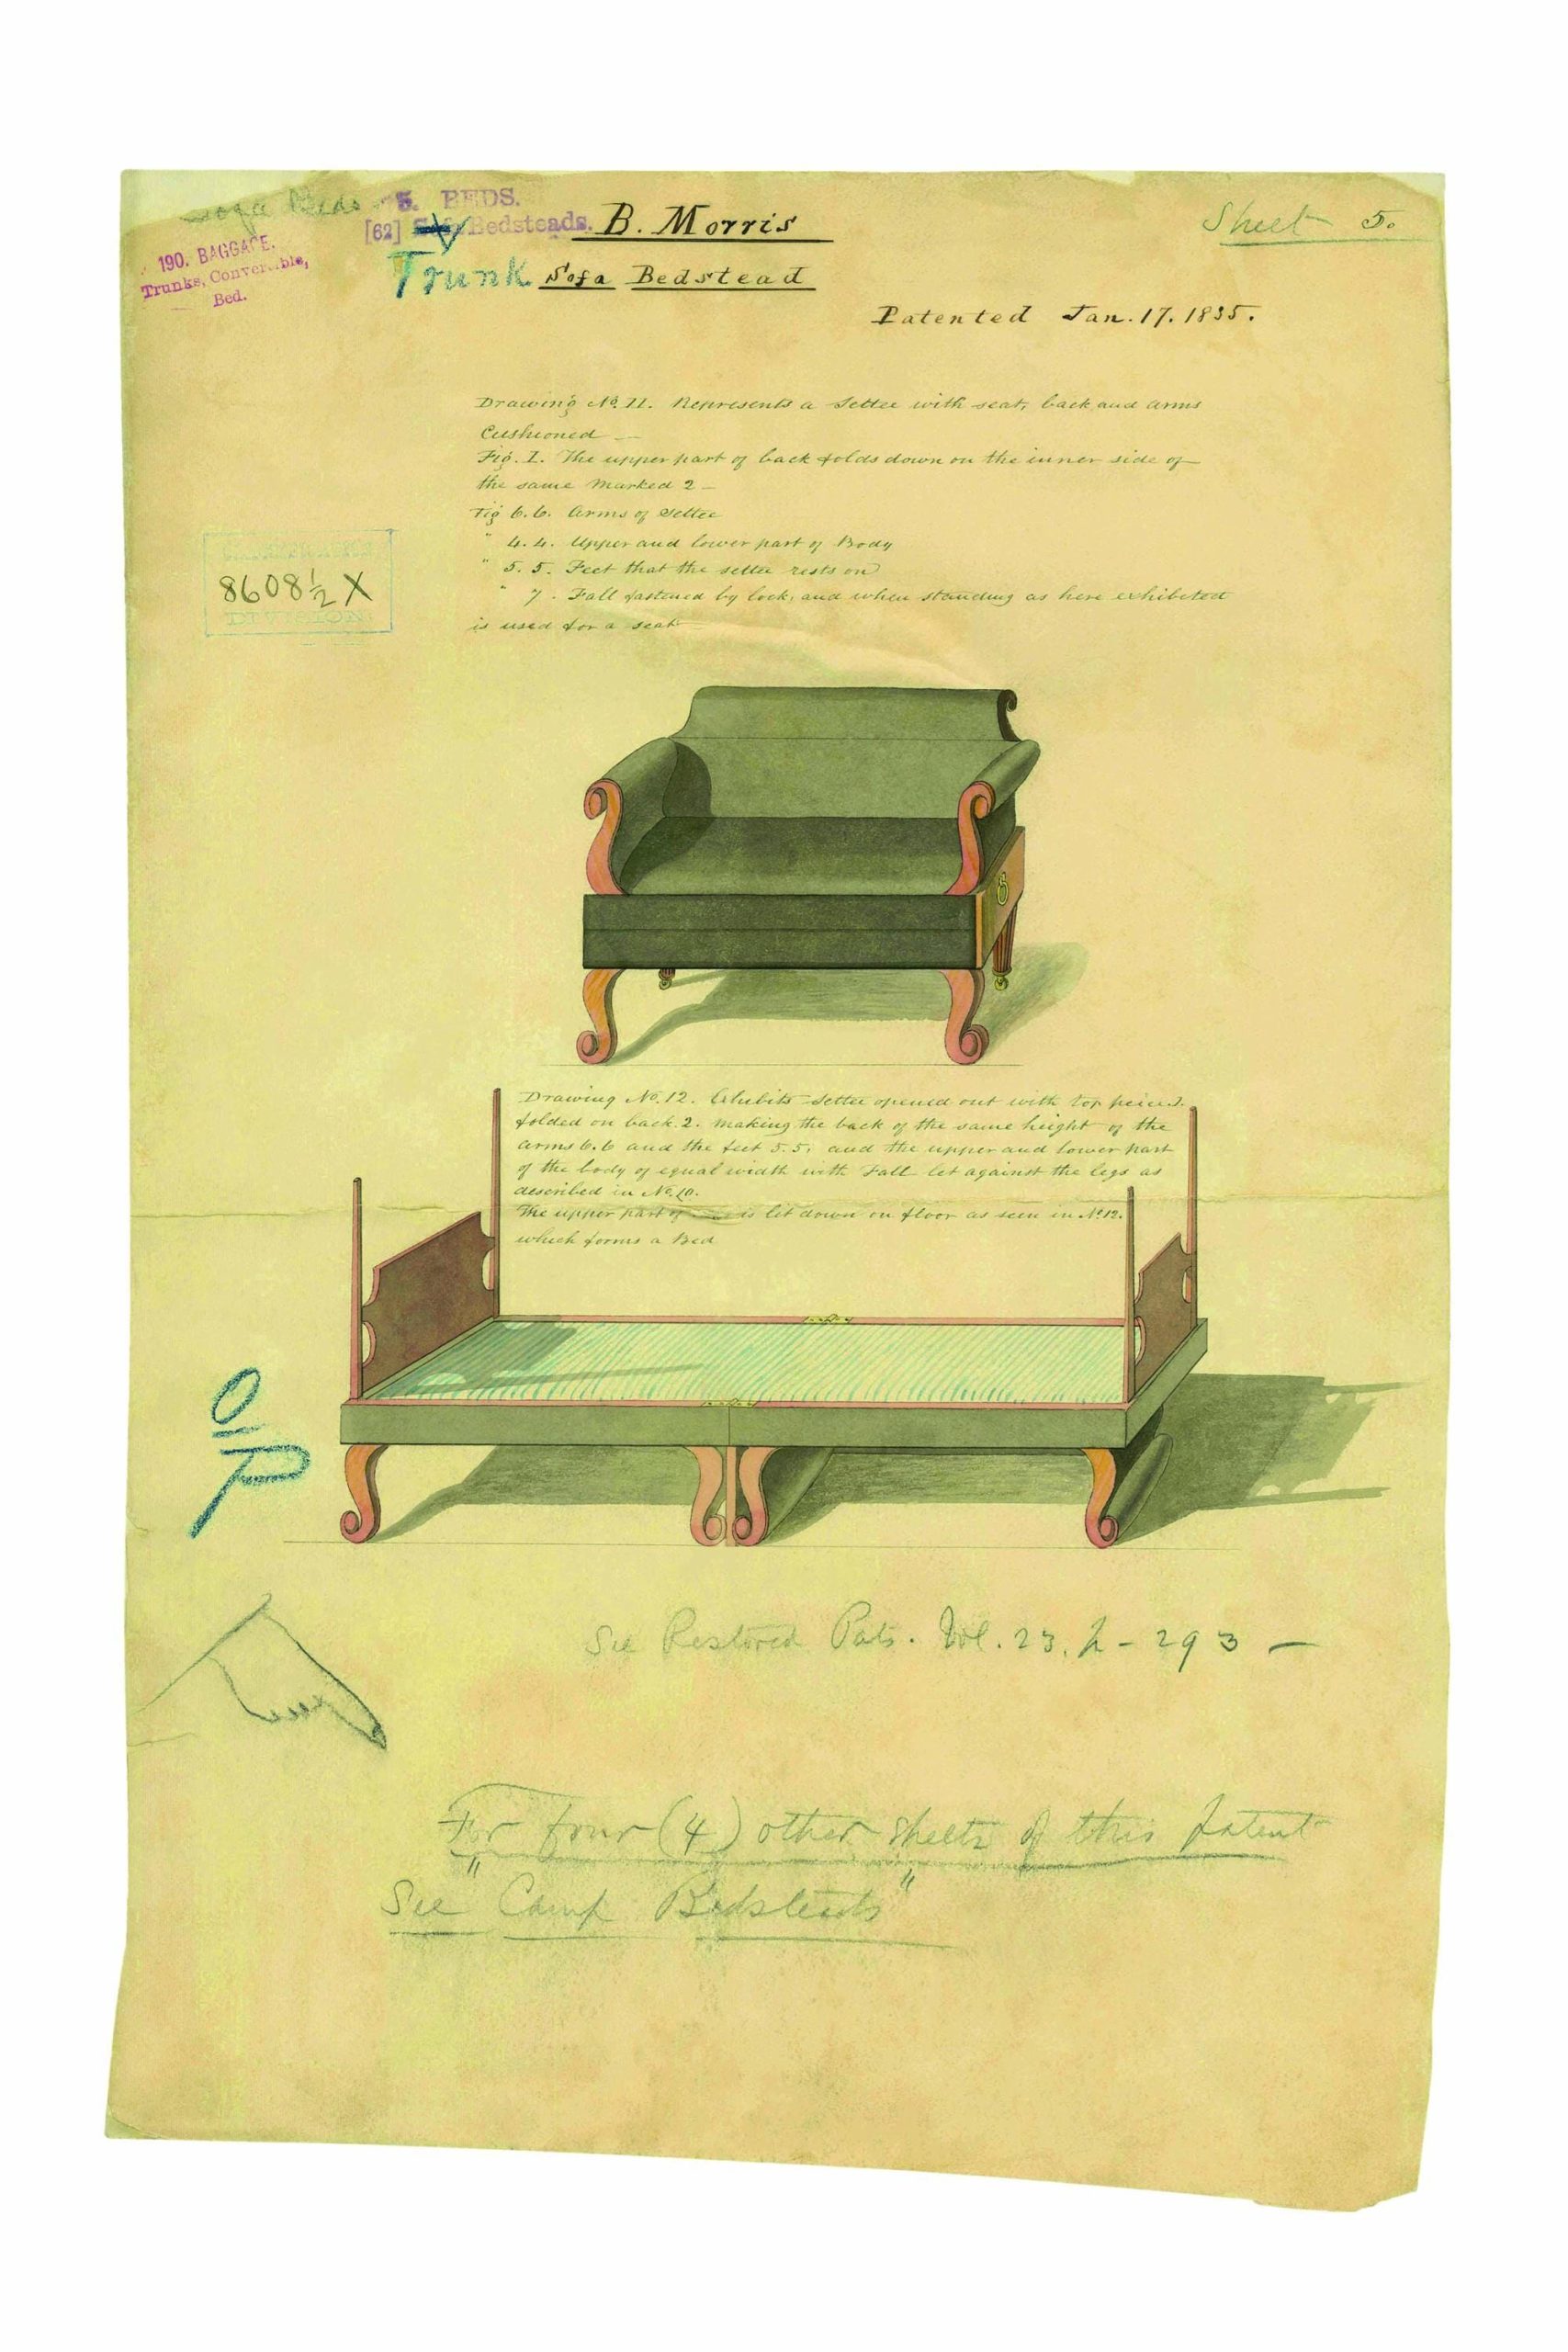 Sofa Beds
5. BEDS.
[62] Bedsteads.
190. BAGGAGE.
Trunks, Convertible,
Bed.
B. Morris
Sheet 5.
Trunk Sofa Bedstead
Patented Jan. 17. 1835.
Drawing No. 11. Represents a Settee with seat, back and arms
Cushioned —
Fig. 1. The upper part of back folds down on the inner side of
the same Marked 2 —
Fig 6.6. Arms of Settee
" 4.4. Upper and lower part of Body
" 5.5. Feet that the settee rests on
" 7. Fall fastened by lock, and when standing as here exhibited
is used for a seat
8608½ X
DIVISION
Drawing No. 12. Exhibits Settee opened out with top
folded on back. 2. Making the back of the same height of the
arms 6.6 and the feet 5.5, and the upper and lower part
of the body of equal width with Fall let against the legs as
described in No. 10.
The upper part of is let down on floor as seen in No 12.
which forms a Bed
See Restored Pats. Vol. 23. p - 293 —
For four (4) other sheets of this patent
See "Camp Bedsteads"